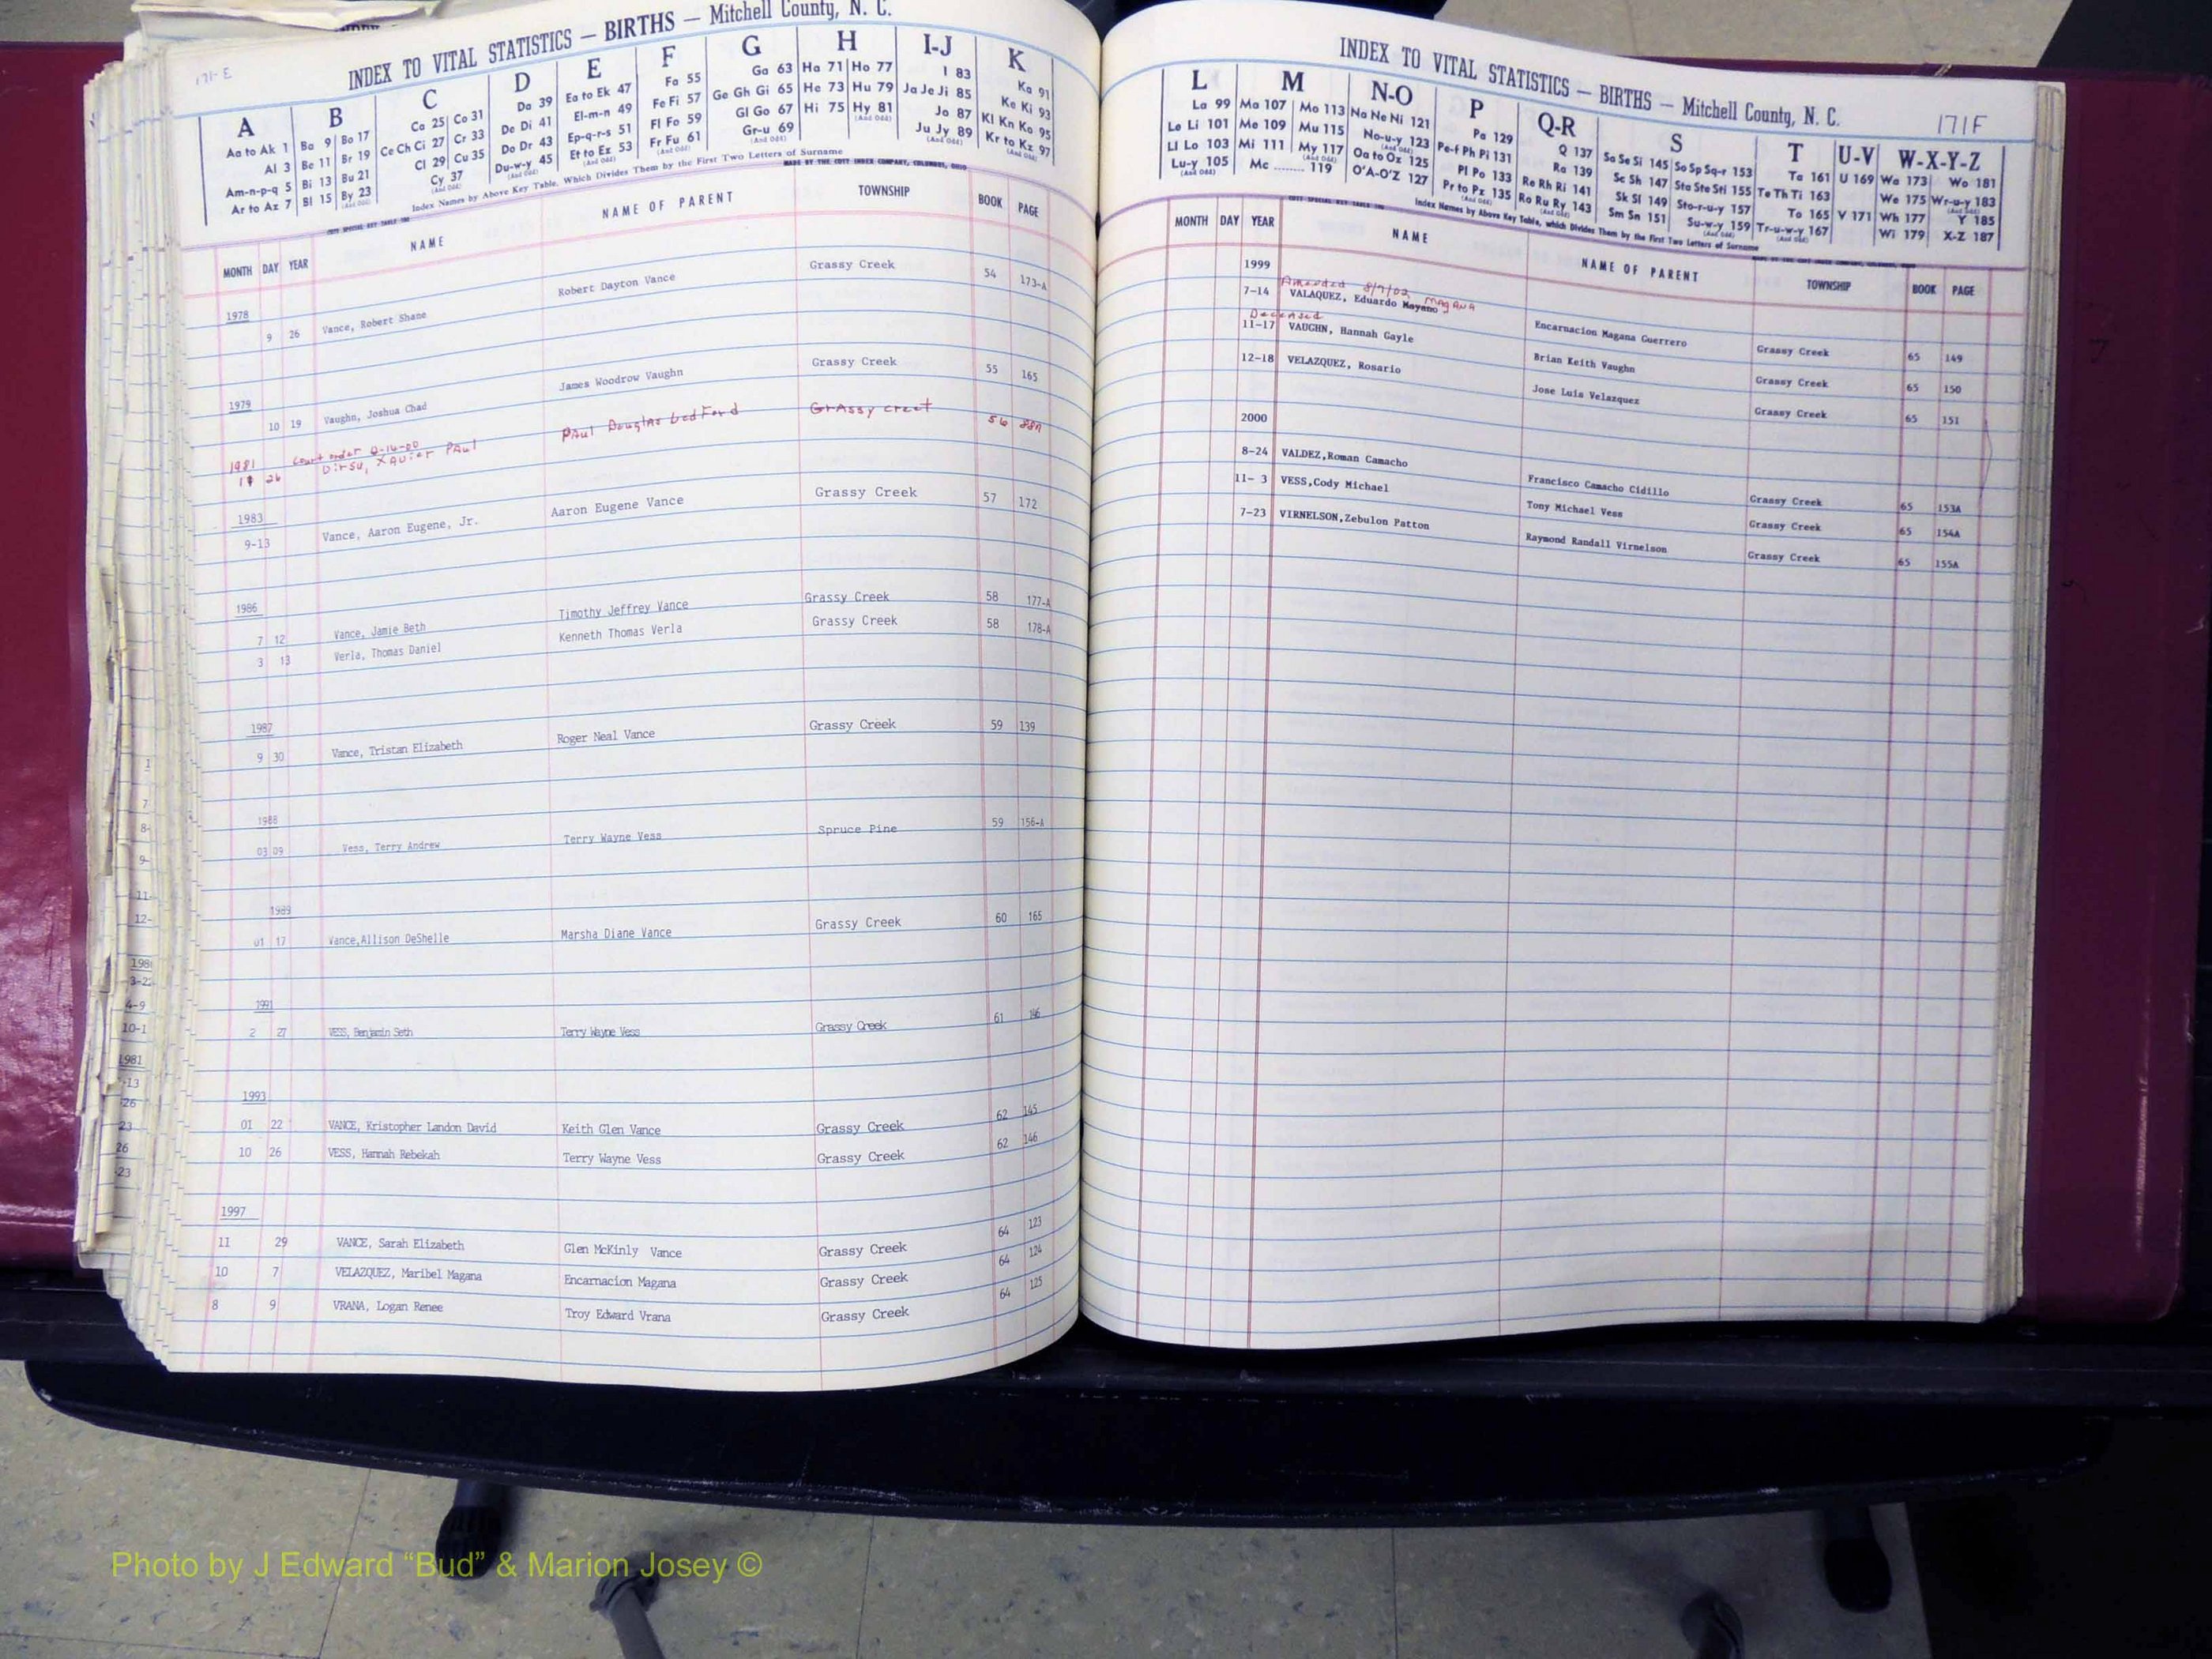 171-E
INDEX TO VITAL STATISTICS — BIRTHS — Mitchell County, N. C.
A B C D E F G H I-J K
Aa to Ak 1 Ba 9 Bo 17 Ca 25 Co 31 Da 39 Ea to Ek 47 Fa 55 Ga 63 Ha 71 Ho 77 I 83 Ka 91
Al 3 Be 11 Br 19 Ce Ch Ci 27 Cr 33 De Di 41 El-m-n 49 Fe Fi 57 Ge Gh Gi 65 He 73 Hu 79 Ja Je Ji 85 Ke Ki 93
Am-n-p-q 5 Bi 13 Bu 21 Cl 29 Cu 35 Do Dr 43 Ep-q-r-s 51 Fl Fo 59 Gl Go 67 Hi 75 Hy 81 Jo 87 Kl Kn Ko 95
Ar to Az 7 Bl 15 By 23 Cy 37 Du-w-y 45 Et to Ez 53 Fr Fu 61 Gr-u 69 Ju Jy 89 Kr to Kz 97
Index Names by Above Key Table, Which Divides Them by the First Two Letters of Surname
MADE BY THE COTT INDEX COMPANY, COLUMBUS, OHIO
MONTH DAY YEAR NAME NAME OF PARENT TOWNSHIP BOOK PAGE
1978
9 26 Vance, Robert Shane Robert Dayton Vance Grassy Creek 54 173-A
1979
10 19 Vaughn, Joshua Chad James Woodrow Vaughn Grassy Creek 55 165
1981 Court order
26 XAvier PAul PAul Douglas bedFord GrAssy creek 56
1983
9-13 Vance, Aaron Eugene, Jr. Aaron Eugene Vance Grassy Creek 57 172
1986
7 12 Vance, Jamie Beth Timothy Jeffrey Vance Grassy Creek 58 177-A
3 13 Verla, Thomas Daniel Kenneth Thomas Verla Grassy Creek 58 178-A
1987
9 30 Vance, Tristan Elizabeth Roger Neal Vance Grassy Creek 59 139
1988
03 09 Vess, Terry Andrew Terry Wayne Vess Spruce Pine 59 156-A
1989
01 17 Vance,Allison DeShelle Marsha Diane Vance Grassy Creek 60 165
1991
2 27 VESS, Benjamin Seth Terry Wayne Vess Grassy Creek 61 146
1993
01 22 VANCE, Kristopher Landon David Keith Glen Vance Grassy Creek 62 145
10 26 VESS, Hannah Rebekah Terry Wayne Vess Grassy Creek 62 146
1997
11 29 VANCE, Sarah Elizabeth Glen McKinly Vance Grassy Creek 64 123
10 7 VELAZQUEZ, Maribel Magana Encarnacion Magana Grassy Creek 64 124
8 9 VRANA, Logan Renee Troy Edward Vrana Grassy Creek 64 125
INDEX TO VITAL STATISTICS — BIRTHS — Mitchell County, N. C.
171F
L M N-O P Q-R S T U-V W-X-Y-Z
La 99 Ma 107 Mo 113 Na Ne Ni 121 Pa 129 Q 137 Sa Se Si 145 So Sp Sq-r 153 Ta 161 U 169 Wa 173 Wo 181
Le Li 101 Me 109 Mu 115 No-u-y 123 Pe-f Ph Pi 131 Ra 139 Sc Sh 147 Sta Ste Sti 155 Te Th Ti 163 We 175 Wr-u-y 183
Ll Lo 103 Mi 111 My 117 Oa to Oz 125 Pl Po 133 Re Rh Ri 141 Sk Sl 149 Sto-r-u-y 157 To 165 V 171 Wh 177 Y 185
Lu-y 105 Mc ........ 119 O'A-O'Z 127 Pr to Pz 135 Ro Ru Ry 143 Sm Sn 151 Su-w-y 159 Tr-u-w-y 167 Wi 179 X-Z 187
Index Names by Above Key Table, which Divides Them by the First Two Letters of Surname
MONTH DAY YEAR NAME NAME OF PARENT TOWNSHIP BOOK PAGE
1999
Amended 8/7/02 MagAnA
7-14 VALAQUEZ, Eduardo Moyano Encarnacion Magana Guerrero Grassy Creek 65 149
Deceased
11-17 VAUGHN, Hannah Gayle Brian Keith Vaughn Grassy Creek 65 150
12-18 VELAZQUEZ, Rosario Jose Luis Velazquez Grassy Creek 65 151
2000
8-24 VALDEZ,Roman Camacho Francisco Camacho Cidillo Grassy Creek 65 153A
11- 3 VESS,Cody Michael Tony Michael Vess Grassy Creek 65 154A
7-23 VIRNELSON,Zebulon Patton Raymond Randall Virnelson Grassy Creek 65 155A
Photo by J Edward “Bud” & Marion Josey ©